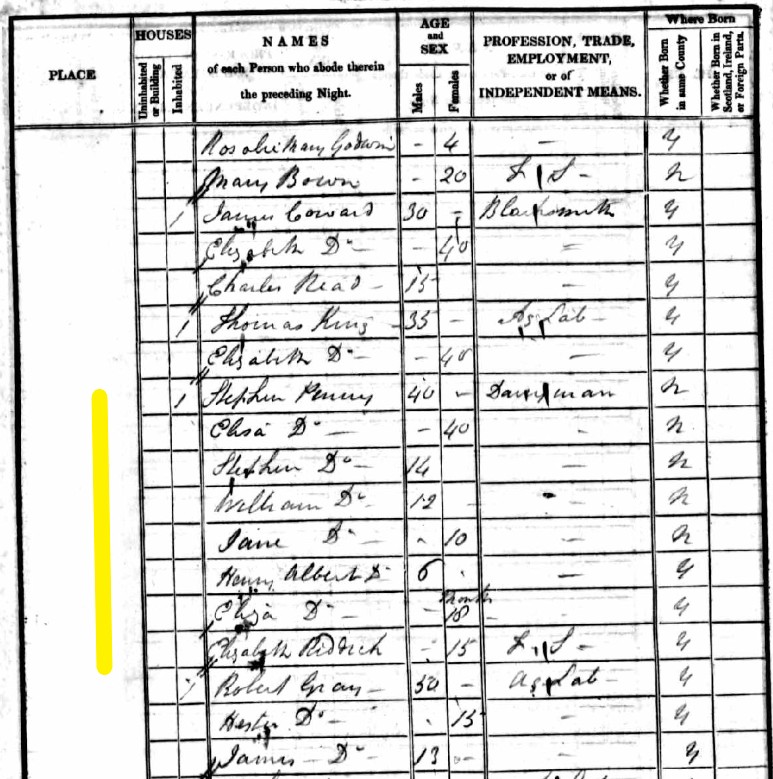 PLACE
HOUSES
Uninhabited or Building
Inhabited
NAMES
of each Person who abode therein
the preceding Night.
AGE
and
SEX
Males
Females
PROFESSION, TRADE,
EMPLOYMENT,
or of
INDEPENDENT MEANS.
Where Born
Whether Born in same County
Whether Born in Scotland, Ireland, or Foreign Parts.
Rosalie Mary Godwin - 4 - y
Mary Bown - 20 F S - n
1 James Coward 30 - Blacksmith y
Elizabeth Do - - 40 - y
Charles Read - 15 - y
1 Thomas King - 35 - Ag Lab - y
Elizabeth Do - - 40 - y
1 Stephen Penny 40 - Dairyman n
Eliza Do - - 40 - n
Stephen Do - 14 - n
William Do - 12 - n
Jane Do - - 10 - n
Henry Albert Do 6 - - y
Eliza Do - - 18 months - y
Elizabeth Riddick - 15 F S - y
1 Robert Gray - 50 - Ag Lab - y
Hester Do - - 15 - y
James - Do - 13 - y